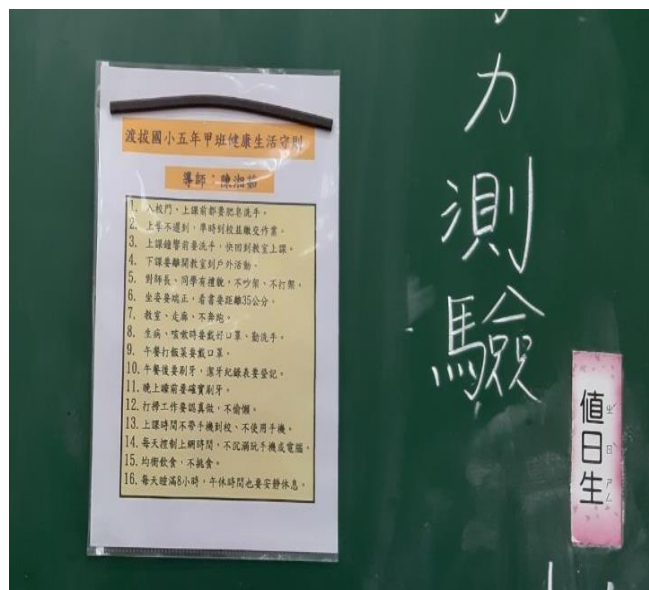 渡拔國小五年甲班健康生活守則
導師：陳湘茹
1. 入校門，上課前都要肥皂洗手。
2. 上學不遲到，準時到校並繳交作業。
3. 上課鐘響前要洗手，快回到教室上課。
4. 下課要離開教室到戶外活動。
5. 對師長、同學有禮貌，不吵架、不打架。
6. 坐姿要端正，看書要距離35公分。
7. 教室、走廊，不奔跑。
8. 生病、咳嗽時要戴好口罩、勤洗手。
9. 午餐打飯菜要戴口罩。
10. 午餐後要刷牙，潔牙紀錄表要登記。
11. 晚上睡前要確實刷牙。
12. 打掃工作要認真做，不偷懶。
13. 上課時間不帶手機到校、不使用手機。
14. 每天控制上網時間，不沉溺玩手機或電腦。
15. 均衡飲食，不挑食。
16. 每天睡滿8小時，午休時間也要安靜休息。
力測驗
值日生